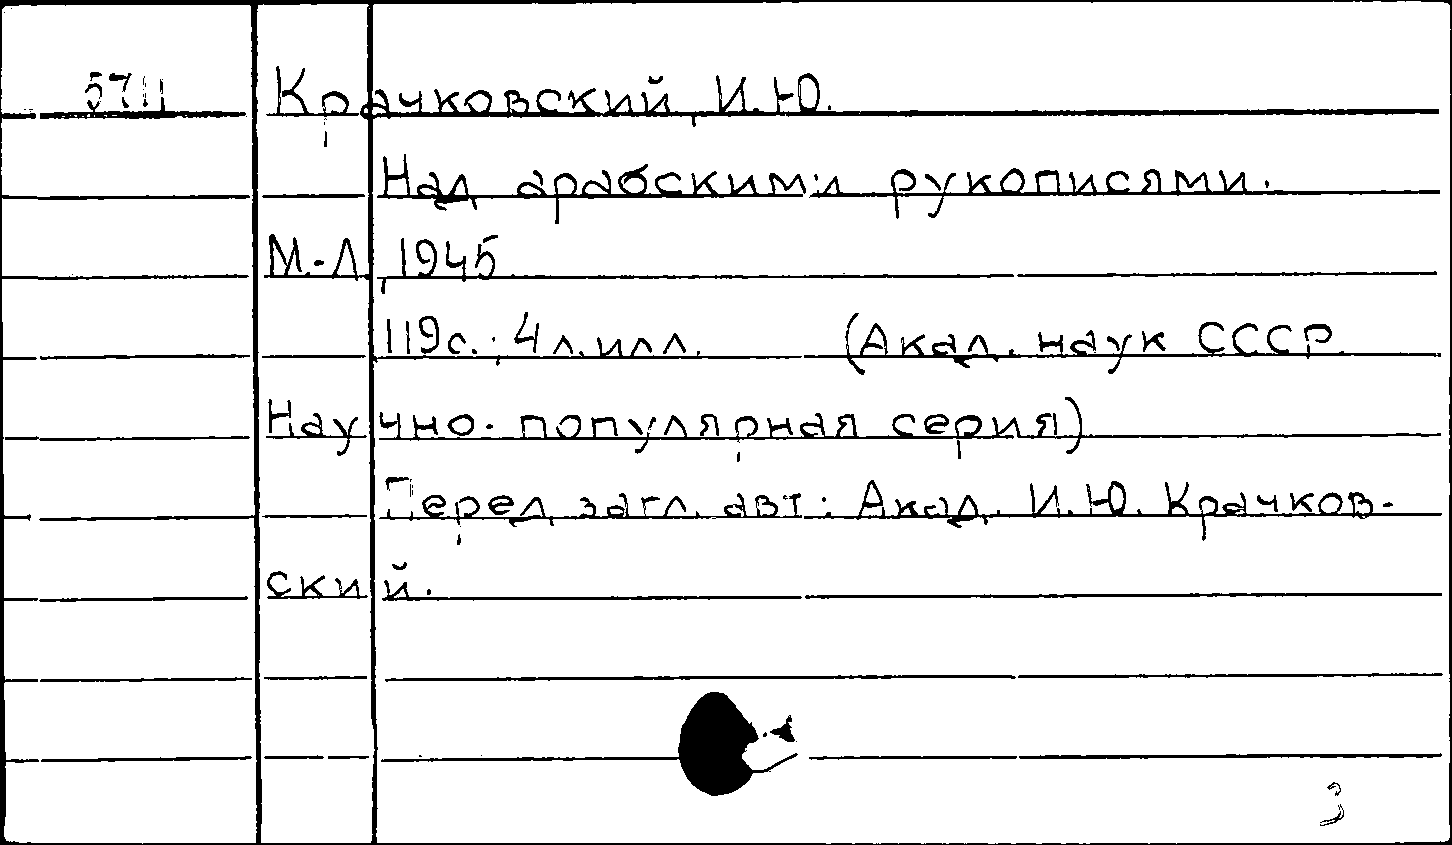 5711 Крачковский, И.Ю.
Над арабскими рукописями.
М.-Л., 1945
119с.; 4 л. илл. (Акад. наук СССР.
Научно-популярная серия)
Перед загл. авт: Акад. И.Ю. Крачков-
ский.
3